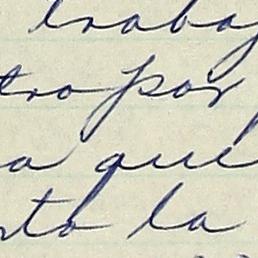 trabaj
tro por
a que
sto la